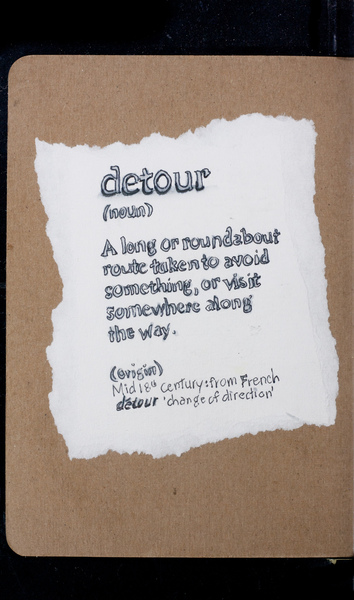 detour
(noun)
A long or roundabout
route taken to avoid
something, or visit
somewhere along
the way.
(origin)
Mid 18th century: from French
detour 'change of direction'